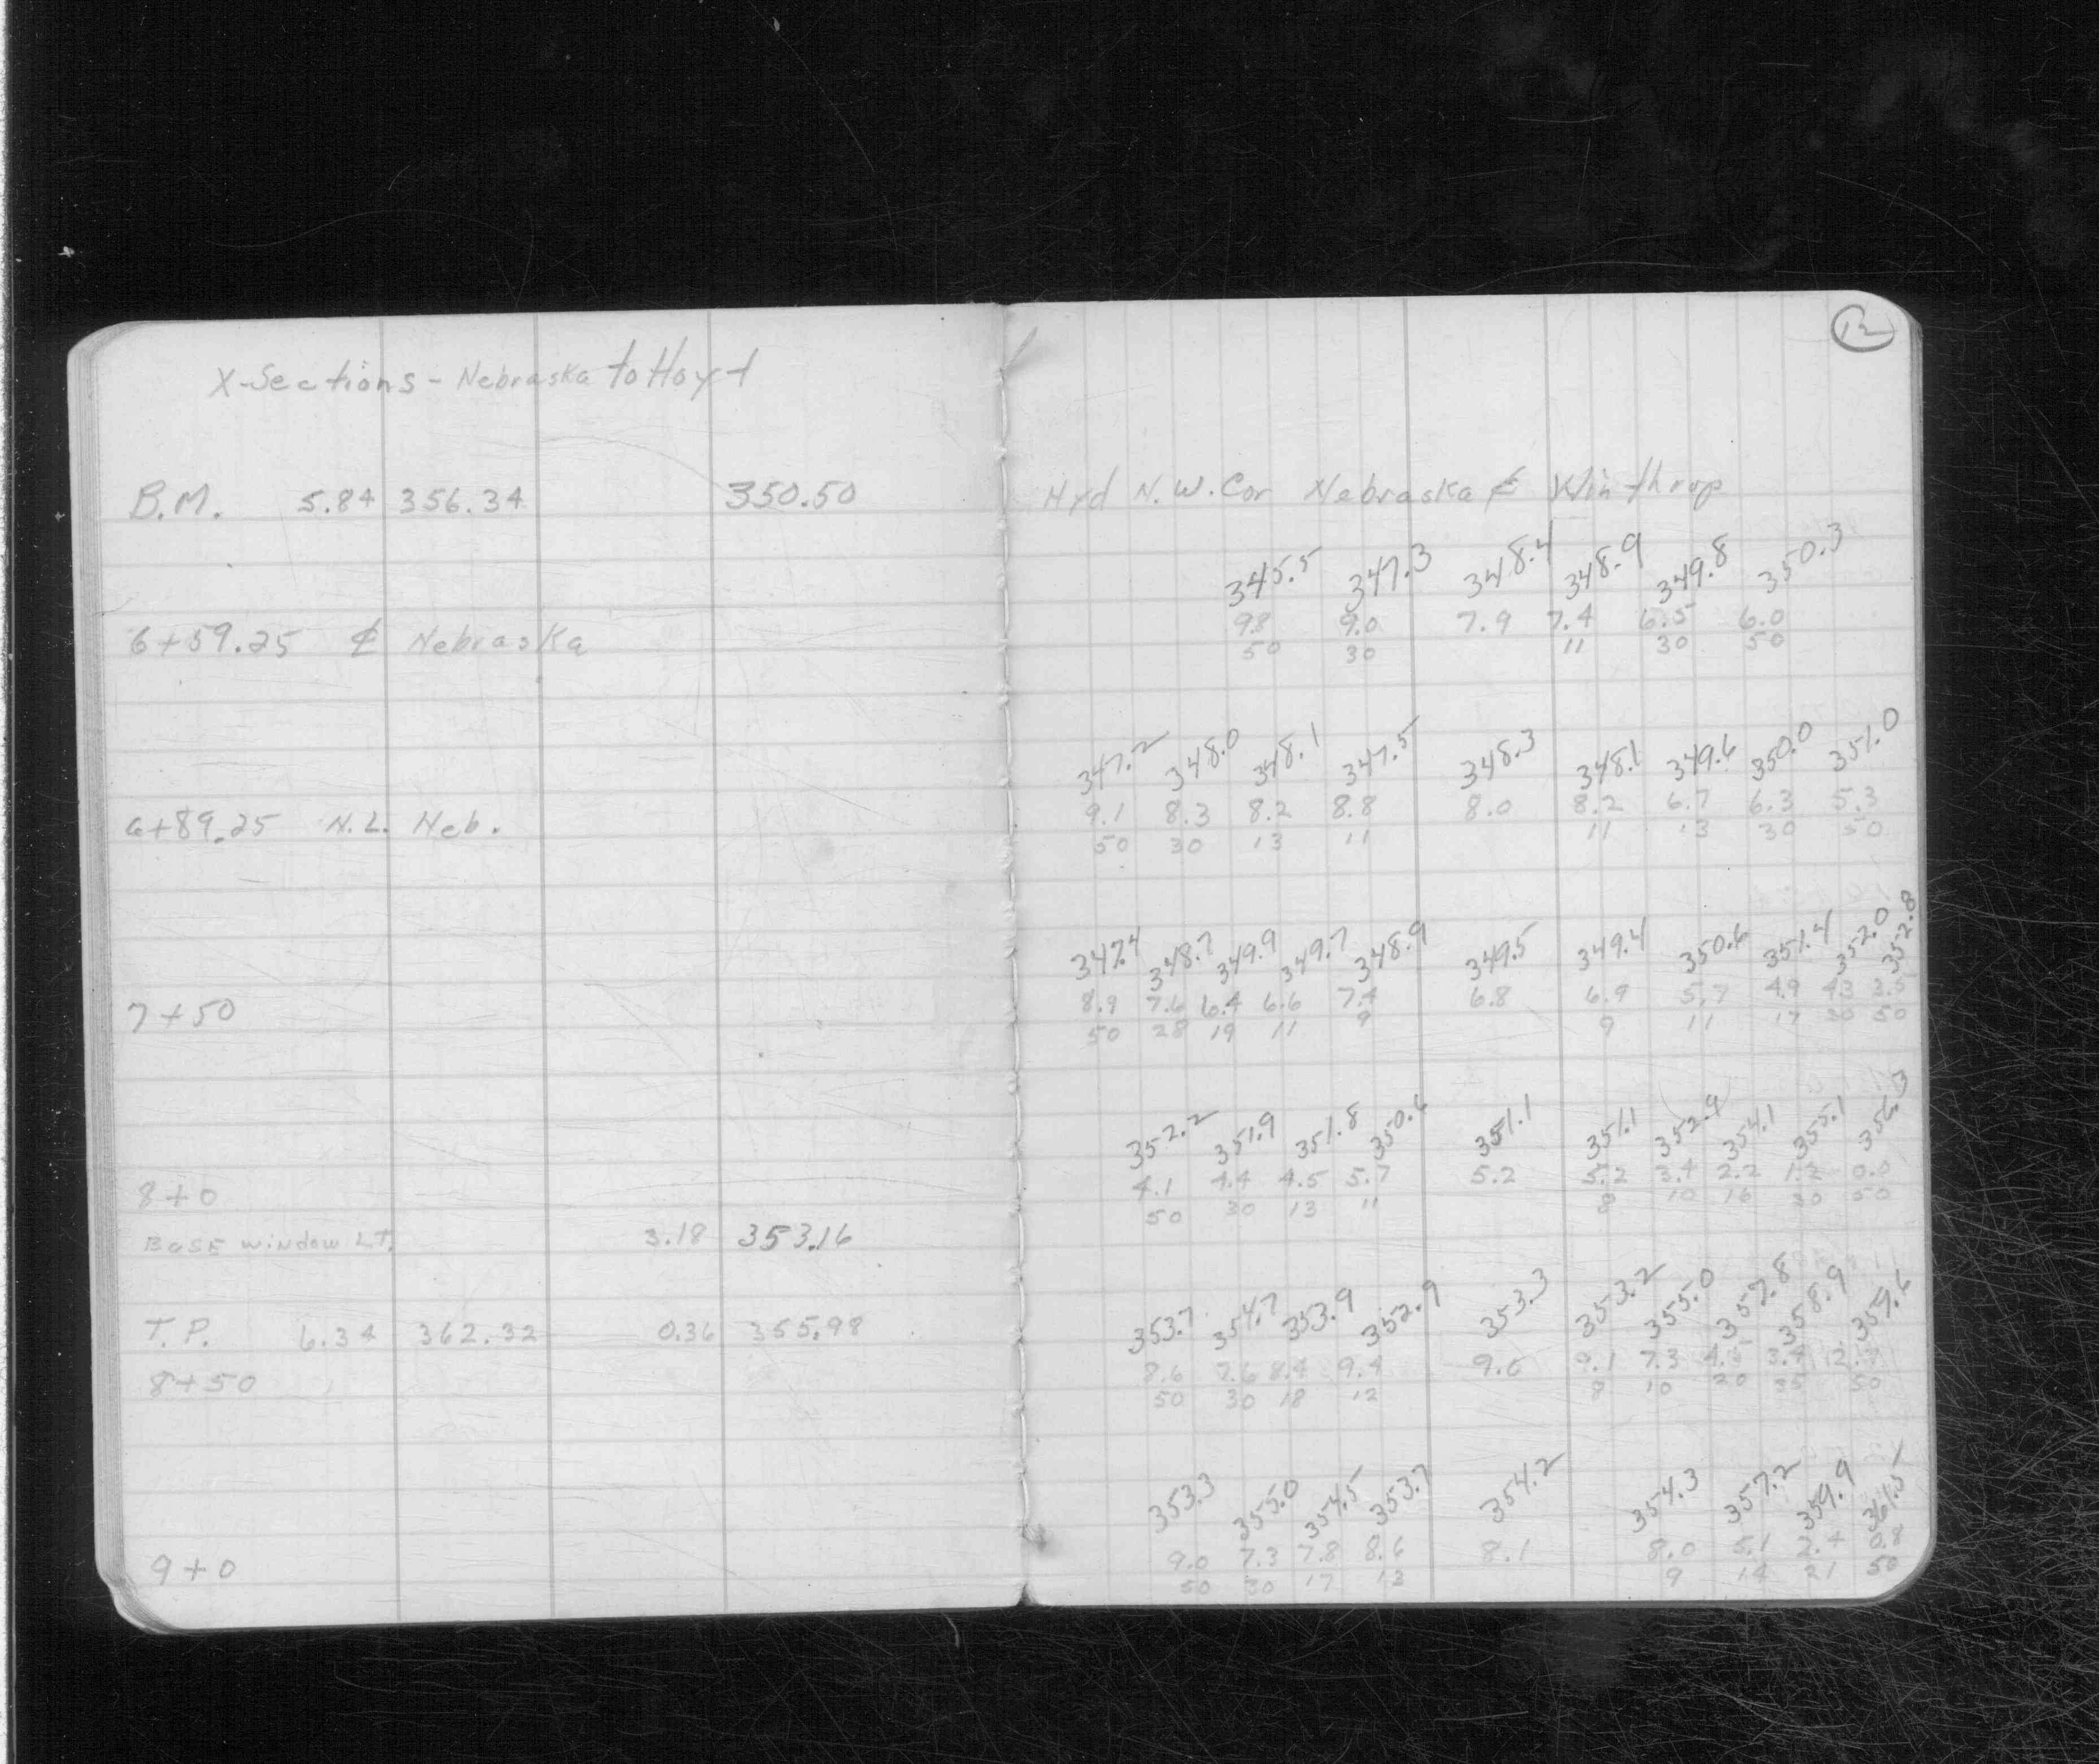 12
X-Sections - Nebraska to Hoyt
B.M. 5.84 356.34 350.50 Hyd N.W. Cor Nebraska & Winthrop
345.5 347.3 348.4 348.9 349.8 350.3
9.8 9.0 7.9 7.4 6.5 6.0
6+59.25 ₵ Nebraska 50 30 11 30 50
347.2 348.0 348.1 347.5 348.3 348.1 349.6 350.0 351.0
9.1 8.3 8.2 8.8 8.0 8.2 6.7 6.3 5.3
6+89.25 N.L. Neb. 50 30 13 11 11 13 30 50
347.4 348.7 349.9 349.7 348.9 349.5 349.4 350.6 351.4 352.0 352.8
8.9 7.6 6.4 6.6 7.4 6.8 6.9 5.7 4.9 4.3 3.5
7+50 50 28 19 11 9 9 11 17 30 50
352.2 351.9 351.8 350.6 351.1 351.1 352.9 354.1 355.1 356.3
4.1 4.4 4.5 5.7 5.2 5.2 3.4 2.2 1.2 0.0
8+0 50 30 13 11 8 10 16 30 50
Base window LT. 3.18 353.16
353.7 354.7 353.9 352.9 353.3 353.2 355.0 357.8 358.9 359.6
T.P. 6.34 362.32 0.36 355.98
8.6 7.6 8.4 9.4 9.0 9.1 7.3 4.5 3.4 2.7
8+50 50 30 18 12 8 10 20 35 50
353.3 355.0 354.5 353.7 354.2 354.3 357.2 359.9 361.5
9.0 7.3 7.8 8.6 8.1 8.0 5.1 2.4 0.8
9+0 50 30 17 12 9 14 21 50